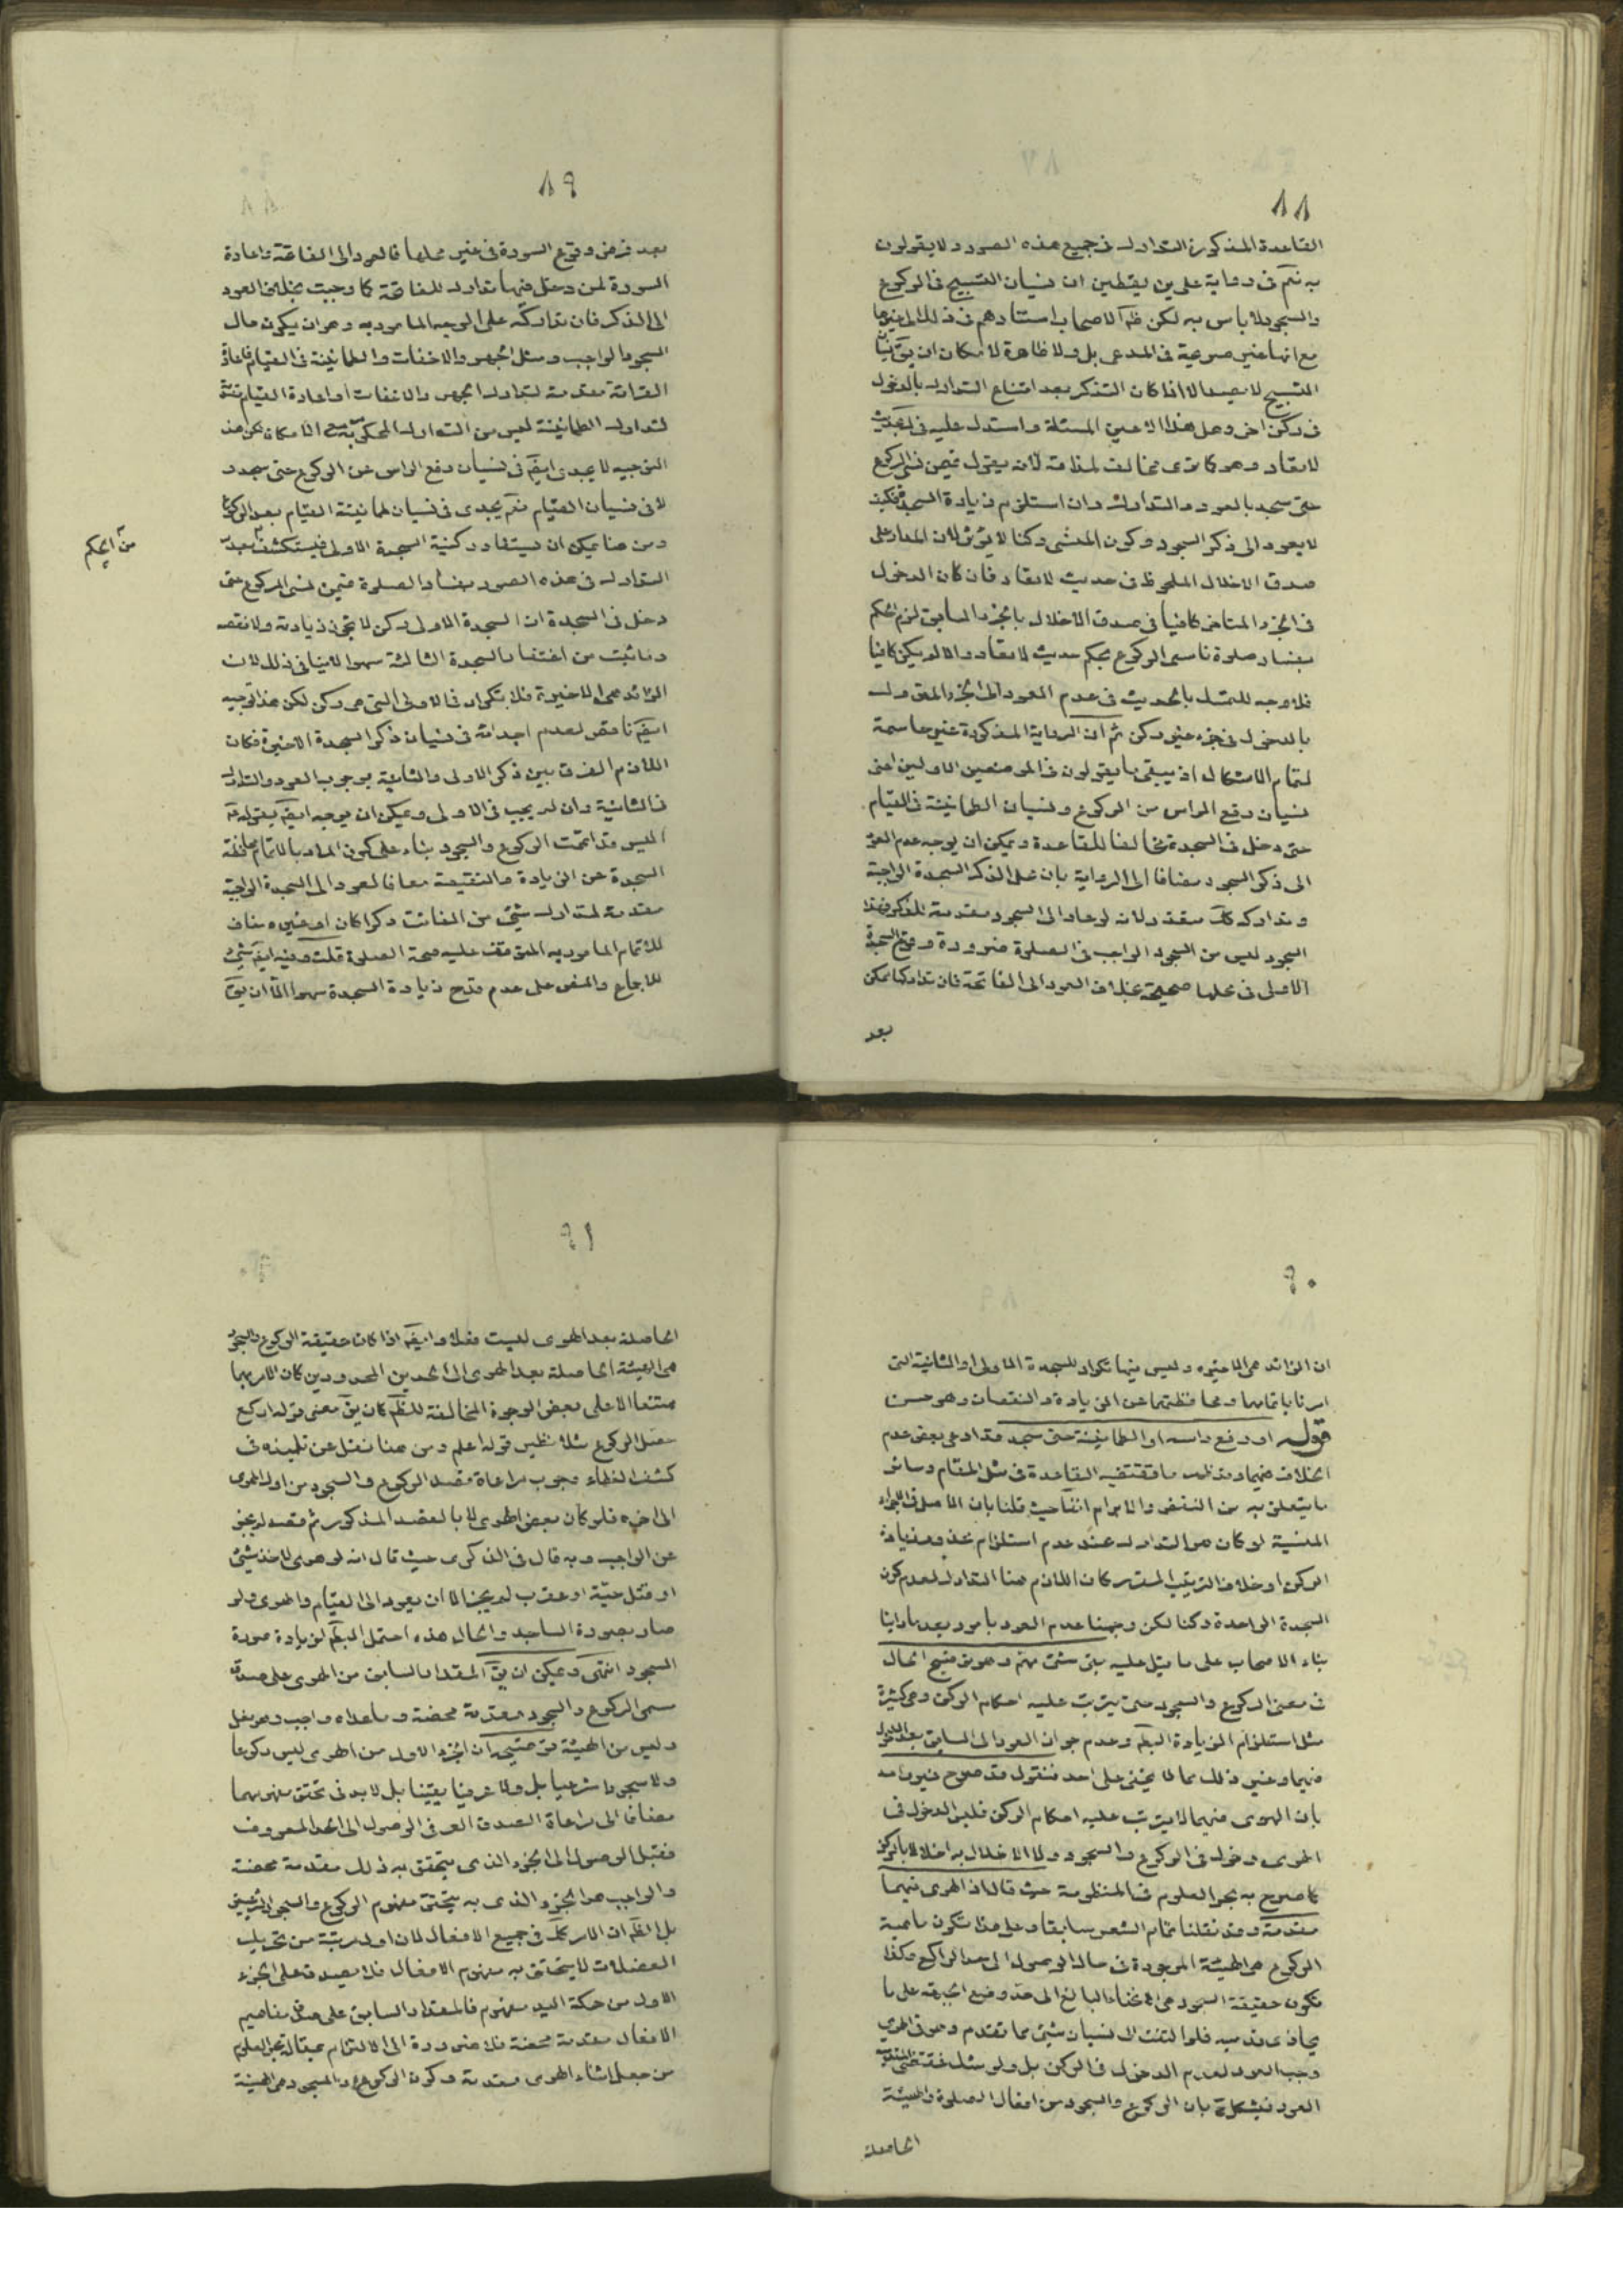 ٨٨
القاعدة المذكورة التدارك فى جميع هذه الصور ولا يقولون
به نعم فى رواية على بن يقطين ان نسيان التسبيح فى الركوع
والسجود لا باس به لكن ظ الاصحاب استنادهم فى ذلك الى غيرها
مع انها غير صريحة فى المدعى بل ولا ظاهرة لامكان ان يق نسيان
التسبيح لا يصدق الا اذا كان التذكر بعد امتناع التدارك بالدخول
فى ركن اخر وهل هذا الا عين المسئلة واستدل عليه فى بحديث
لا تعاد وهو كما ترى مخالف لمذاقه لانه يقول فيمن نسى الركوع
حتى سجد بالعود والتدارك وان استلزم زيادة السجدة فكيف
لا يعود الى ذكر السجود وكون المنسى ركنا لا يؤثر لان المدار على
صدق الاخلال الملحوظ فى حديث لا تعاد فان كان الدخول
فى الجزء المتاخر كافيا فى صدق الاخلال بالجزء السابق لزم الحكم
بفساد صلوة ناسى الركوع بحكم حديث لا تعاد والا لم يكن كافيا
فلا وجه للتمسك بالحديث فى عدم العود الى الجزء المتروك
بالدخول فى جزء غير ركن ثم ان الرواية المذكورة غير حاسمة
لتمام الاشكال اذ يبقى ما يقولون فى الموضعين الاولين اعنى
نسيان رفع الراس من الركوع ونسيان الطمانينة فى القيام
حتى دخل فى السجدة مخالفا للقاعدة ويمكن ان يوجه عدم العود
الى ذكر السجود مضافا الى الرواية بان محل الذكر السجدة الواجبة
وتداركه كك متعذر لانه لو عاد الى السجود مقدمة للذكر فهذا
السجود ليس من السجود الواجب فى الصلوة ضرورة وقوع السجدة
الاولى فى محلها صحيحة بخلاف العود الى الفاتحة فان تداركها ممكن
بعد
٨٩
بعد فرض وقوع السورة فى غير محلها فالعود الى الفاتحة واعادة
السورة لمن دخل فيها تدارك للفاتحة كما وجبت بخلاف العود
الى الذكر فان تداركه على الوجه المامور به وهو ان يكون حال
السجود الواجب ومثل الجهر والاخفات والطمانينة فى القيام فاعادة
القرائة مقدمة لتدارك الجهر والاخفات او اعادة القيام مقدمة
لتدارك الطمانينة ليس من التدارك المحكوم به مع الامكان لكن هذا
التوجيه لا يجدى ايض فى نسيان رفع الراس من الركوع حتى سجد و
لا فى نسيان القيام نعم يجدى فى نسيان طمانينة القيام بعد الركوع
ومن هنا يمكن ان يستفاد ركنية السجدة الاولى فيستكشف بعد
من الحكم
التدارك فى هذه الصور بفساد الصلوة فيمن نسى الركوع حتى
دخل فى السجدة ان السجدة الاولى ركن لا تجوز زيادته ولا نقصه
وما ثبت من اغتفار السجدة الثالثة سهوا لا ينافى ذلك لان
الزائد هى الاخيرة فلا تكرار فى الاولى التى هى ركن لكن هذا التوجيه
ايض ناقص لعدم اجدائه فى نسيان ذكر السجدة الاخيرة فكان
اللازم الفرق بين ذكر الاولى والثانية بوجوب العود والتدارك
فى الثانية وان لم يجب فى الاولى ويمكن ان يوجه ايض بقوله
اليس قد اتممت الركوع والسجود بناء على كون المراد بالاتمام محافظة
السجدة عن الزيادة والنقيصة معا فالعود الى السجدة الواجبة
مقدمة لتدارك شئ من الفائت ذكرا كان او غيره مناف
للاتمام المامور به المتوقف عليه صحة الصلوة قلت وفيه ايض شئ
للاجماع والنص على عدم قدح زيادة السجدة سهوا الا ان يق
٩٠
ان الزائد هى الاخيرة وليس فيها تكرار للسجدة الاولى او الثانية التى
امرنا باتمامها ومحافظتها عن الزيادة والنقصان وهو حسن
قوله او رفع راسه او الطمانينة حتى سجد قد ادعى بعض عدم
الخلاف فيهما وقد عرفت ما تقتضيه القاعدة فى مثل المقام وسائر
ما يتعلق به من النقض والابرام انفا حيث قلنا بان الاصل فى الاجزاء
المنسية لو كان هو التدارك عند عدم استلزام محذور زيادة
الركن او خلاف الترتيب المعتبر كان اللازم هنا التدارك لعدم كون
السجدة الواحدة ركنا لكن وجهنا عدم العود بامور بعد ما راينا
بناء الاصحاب على ما يتل عليه بقى شئ مهم وهو تنقيح الحال
فى معنى الركوع والسجود حتى يترتب عليه احكام الركن وهى كثيرة
مثل استلزام الزيادة البطلان وعدم جواز العود الى السابق بعد الدخول
فيهما وغير ذلك مما لا يخفى على احد فنقول قد صرح غير واحد
بان الهوى فيهما لا يترتب عليه احكام الركن فليس الدخول فى
الهوى دخول فى الركوع والسجود ولا الاخلال به اخلالا بالركن
كما صرح به بحر العلوم فى المنظومة حيث قال اذ الهوى فيهما
مقدمة وقد نقلنا تمام الشعر سابقا وعلى هذا تكون ماهية
الركوع هى الهيئة الموجودة فى حال الوصول الى حد الراكع وكذا
تكون حقيقة السجود هى الانحناء البالغ الى حد وضع الجبهة على ما
يحاذى قدميه فلو التفت الى نسيان شئ مما تقدم وهو فى الهوى
وجب العود لعدم الدخول فى الركن بل ولو شك فمقتضى القاعدة
العود فيشكل بان الركوع والسجود من افعال الصلوة والهيئة
الحاصلة
٩١
الحاصلة بعد الهوى ليست فعلا وايض اذا كان حقيقة الركوع والسجود
هى الهيئة الحاصلة بعد الهوى الى الحدين المحدودين كان الامر بهما
ممتنعا الا على بعض الوجوه المخالفة للظ كان يق معنى قوله اركع
حصل الركوع مثلا نظير قوله اعلم ومن هنا نقل عن تلميذه فى
كشف الغطاء وجوب مراعاة قصد الركوع والسجود من اول الهوى
الى اخره فلو كان بعض الهوى لا بالقصد المذكور ثم قصد لم يجز
عن الواجب وبه قال فى الذكرى حيث قال انه لو هوى لاخذ شئ
او قتل حية او عقرب لم يجز الا ان يعود الى القيام والهوى ولو
صار بصورة الساجد والحال هذه احتمل البطلان لزيادة صورة
السجود انتهى ويمكن ان يق المقدار السابق من الهوى على صدق
مسمى الركوع والسجود مقدمة محضة وما عداه واجب وهو فعل
وليس من الهيئة توضيحه ان الجزء الاول من الهوى ليس ركوعا
ولا سجودا شرعيا بل ولا عرفيا يقينا بل لا بد فى تحقق مفهومهما
مضافا الى مراعاة الصدق العرفى الوصول الى الحد المعروف
فقبل الوصول الى الجزء الذى يتحقق به ذلك مقدمة محضة
والواجب هو الجزء الذى به يتحقق مفهوم الركوع والسجود الشرعيين
بل الظ ان الامر كك فى جميع الافعال لان اول مرتبة من تحريك
العضلات لا يتحقق به مفهوم الافعال فلا يصدق على الجزء
الاول من حركة اليد مفهوم فالمقدار السابق على صدق مفاهيم
الافعال مقدمة محضة فلا ضرورة الى الالتزام بمقالة بحر العلوم
من جعل انتهاء الهوى مقدمة وكون الركوع والسجود هى الهيئة